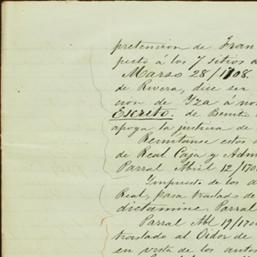 pretencion de Fran
puesto á los 7 sitios d
Marzo 28/1708.
de Rivera, dice se
cion de Yza á no
Escrito. de Benit
apoya la justicia de
Remitanse estos
de Real Caja y Adm
Parral Abril 12/170
Impuesto de los a
Real, pára traslado d
dictamine. Parral
Parral Abl 19/170
traslado al Oidor de
en vista de los autos